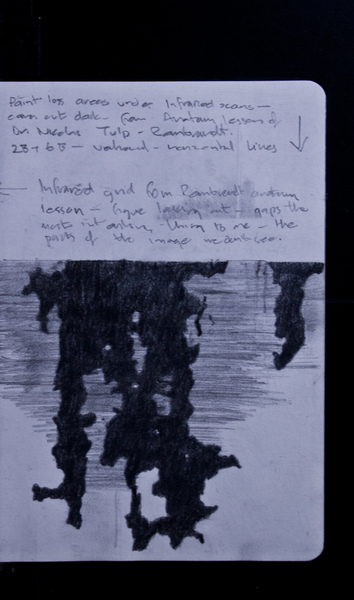 Paint loss areas under Infrared scans –
come out dark from Anatomy lesson of
Dr. Nicolas Tulp – Rembrandt.
horizontal lines
Infrared grid from Rembrandt anatomy
lesson – figure looking out – gaps the
most interesting thing to me – the
parts of the image we dont see.